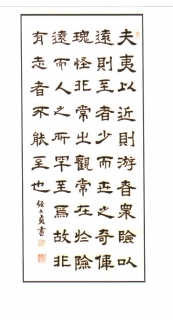 夫夷以近則游者衆險以
遠則至者少而世之奇偉
瑰怪非常之觀常在於險
遠而人之所罕至焉故非
有志者不能至也
書